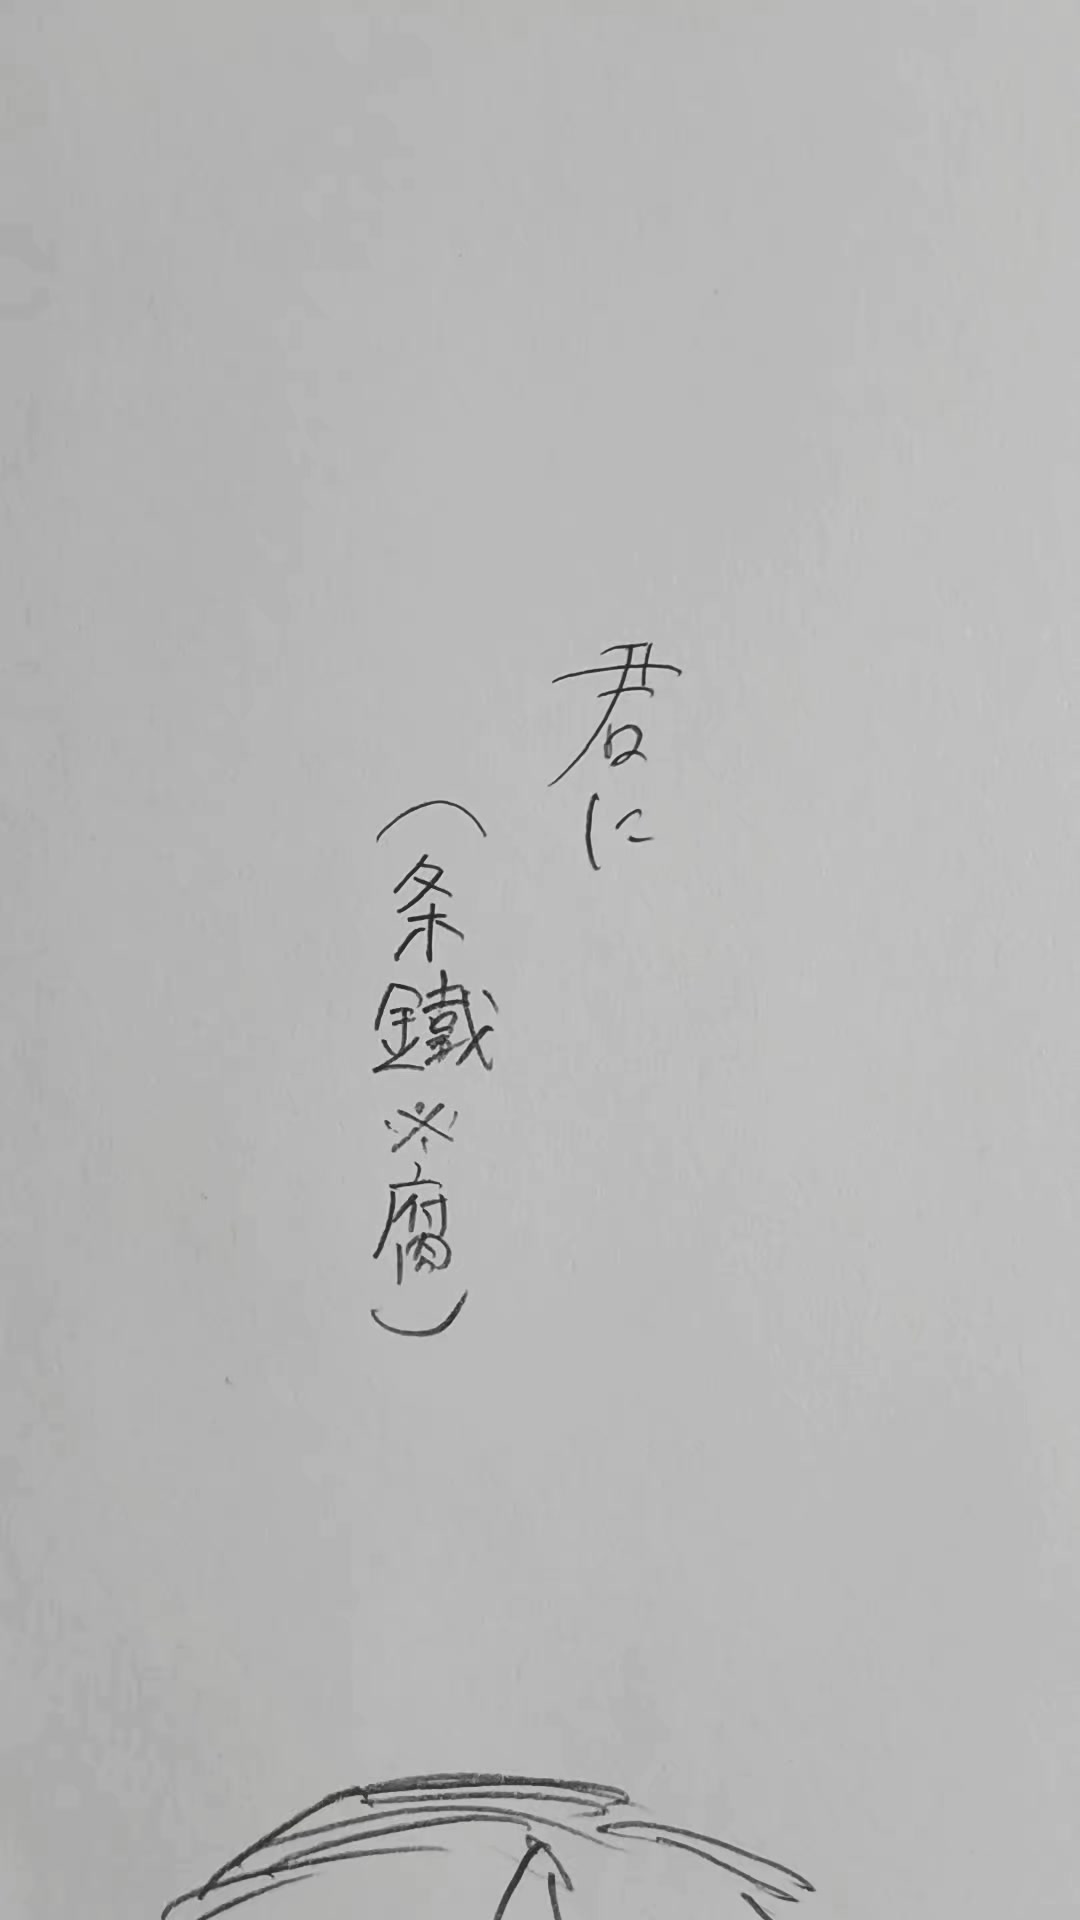 君に
(条鐵※腐)